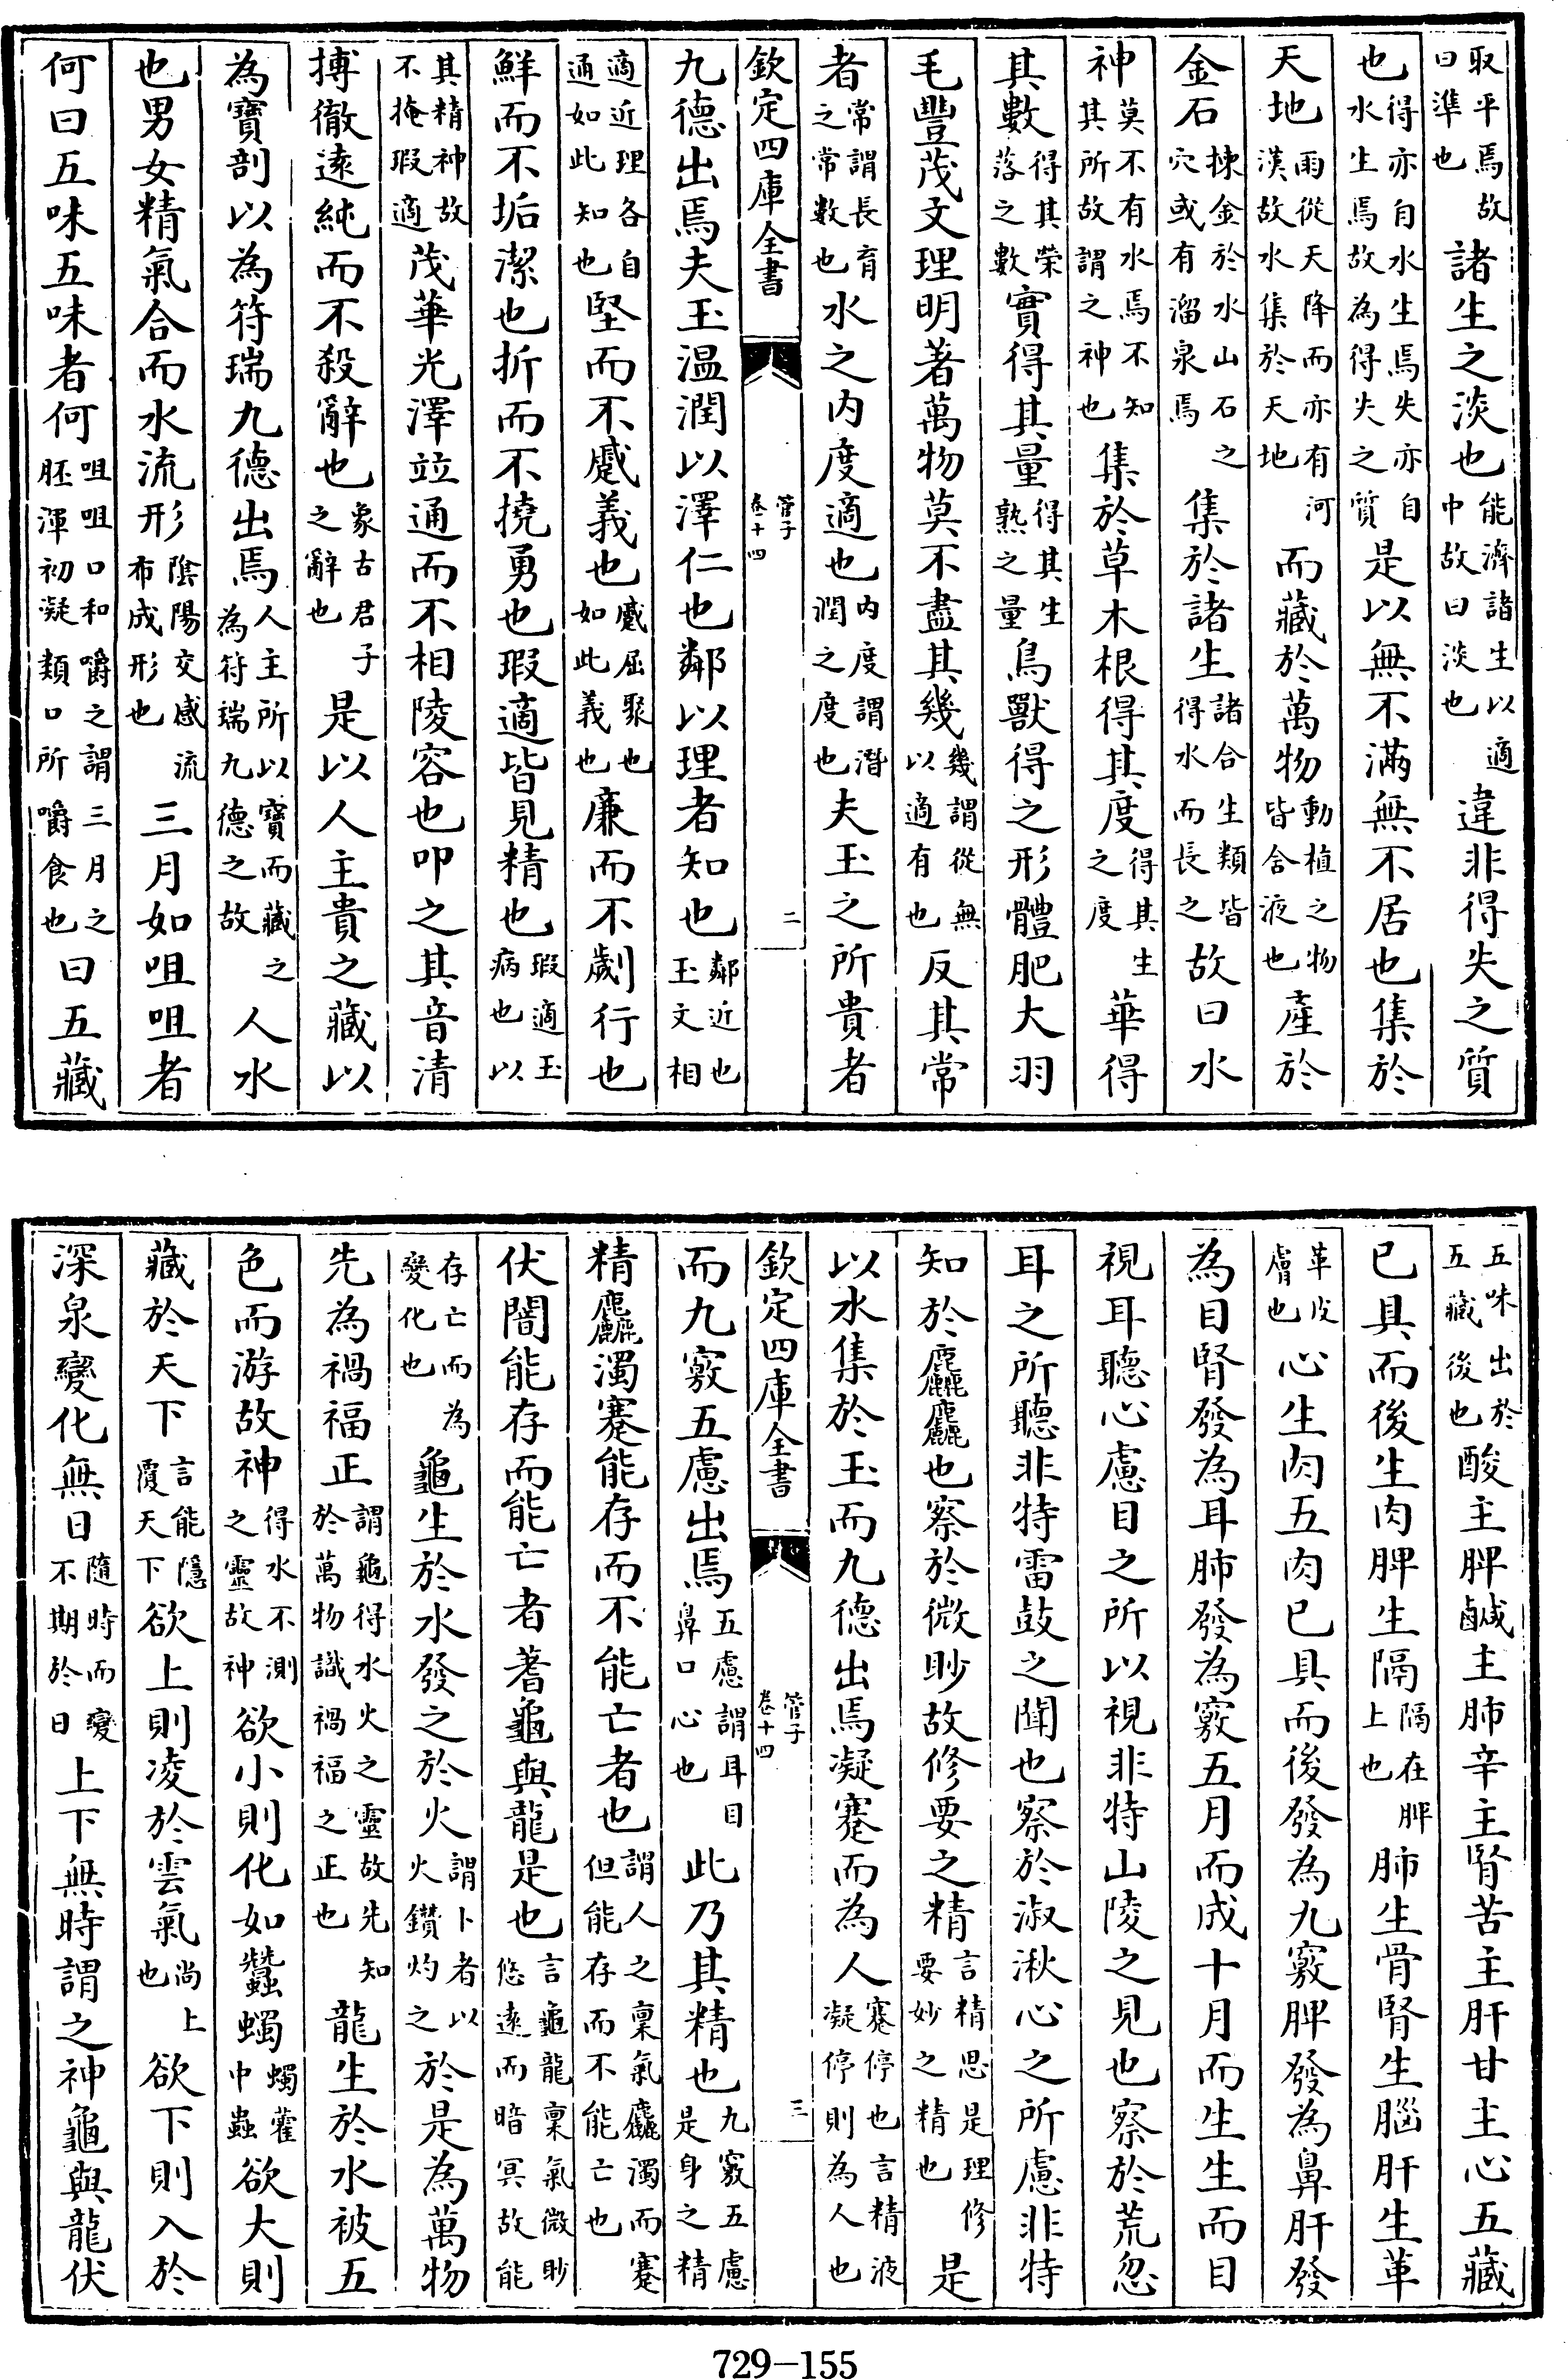 取平焉故曰準也諸生之淡也能濟諸生以適中故曰淡也違非得失之質
也得亦自水生焉失亦自水生焉故為得失之質是以無不滿無不居也集於
天地雨從天降而亦有河漢故水集於天地而藏於萬物動植之物皆含液也產於
金石揀金於水山石之穴或有溜泉焉集於諸生諸合生類皆得水而長之故曰水
神莫不有水焉不知其所故謂之神也集於草木根得其度得其生之度華得
其數得其榮落之數實得其量得其生熟之量鳥獸得之形體肥大羽
毛豐茂文理明著萬物莫不盡其幾幾謂從無以適有也反其常
者常謂長育之常數也水之内度適也内度謂潛潤之度也夫玉之所貴者
欽定四庫全書 管子卷十四 二
九德出焉夫玉温潤以澤仁也鄰以理者知也鄰近也玉文相
適近理各自通如此知也堅而不蹙義也蹙屈聚也如此義也廉而不劌行也
鮮而不垢潔也折而不撓勇也瑕適皆見精也瑕適玉病也以
其精神故不掩瑕適茂華光澤竝通而不相陵容也叩之其音清
搏徹遠純而不殺辭也象古君子之辭也是以人主貴之藏以
為寶剖以為符瑞九德出焉人主所以寶而藏之為符瑞九德之故人水
也男女精氣合而水流形陰陽交感流布成形也三月如咀咀者
何曰五味五味者何咀咀口和嚼之謂三月之胚渾初凝類口所嚼食也曰五藏
五味出於五藏後也酸主脾鹹主肺辛主腎苦主肝甘主心五藏
已具而後生肉脾生隔隔在脾上也肺生骨腎生腦肝生革
革皮膚也心生肉五肉已具而後發為九竅脾發為鼻肝發
為目腎發為耳肺發為竅五月而成十月而生生而目
視耳聽心慮目之所以視非特山陵之見也察於荒忽
耳之所聽非特雷鼓之聞也察於淑湫心之所慮非特
知於麤麤也察於微眇故修要之精言精思是理修要妙之精也是
以水集於玉而九德出焉凝蹇而為人蹇停也言精液凝停則為人也
欽定四庫全書 管子卷十四 三
而九竅五慮出焉五慮謂耳目鼻口心也此乃其精也九竅五慮是身之精
精麤濁蹇能存而不能亡者也謂人之稟氣麤濁而蹇但能存而不能亡也
伏闇能存而能亡者蓍龜與龍是也言龜龍稟氣微眇悠遠而暗冥故能
存亡而為變化也龜生於水發之於火謂卜者以火鑽灼之於是為萬物
先為禍福正謂龜得水火之靈故先知於萬物識禍福之正也龍生於水被五
色而游故神得水不測之靈故神欲小則化如蠶蠋蠋藿中蟲欲大則
藏於天下言能隱覆天下欲上則凌於雲氣尚上也欲下則入於
深泉變化無日隨時而變不期於日上下無時謂之神龜與龍伏
729—155